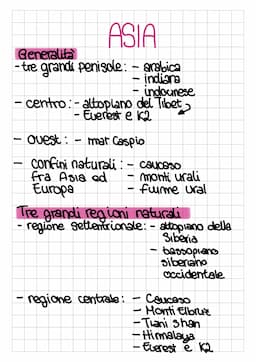 ASIA
Generalità
- tre grandi penisole: - arabica
- indiana
- indocinese
- centro: - altopiano del Tibet
- Everest e K2
- ovest: - mar Caspio
- confini naturali: - caucaso
fra Asia ed - monti urali
Europa - fiume ural
Tre grandi regioni naturali
- regione settentrionale: - altopiano della
Siberia
- bassopiano
siberiano
occidentale
- regione centrale: - Caucaso
- Monti Elbrus
- Tiani shan
- Himalaya
- Everest e K2